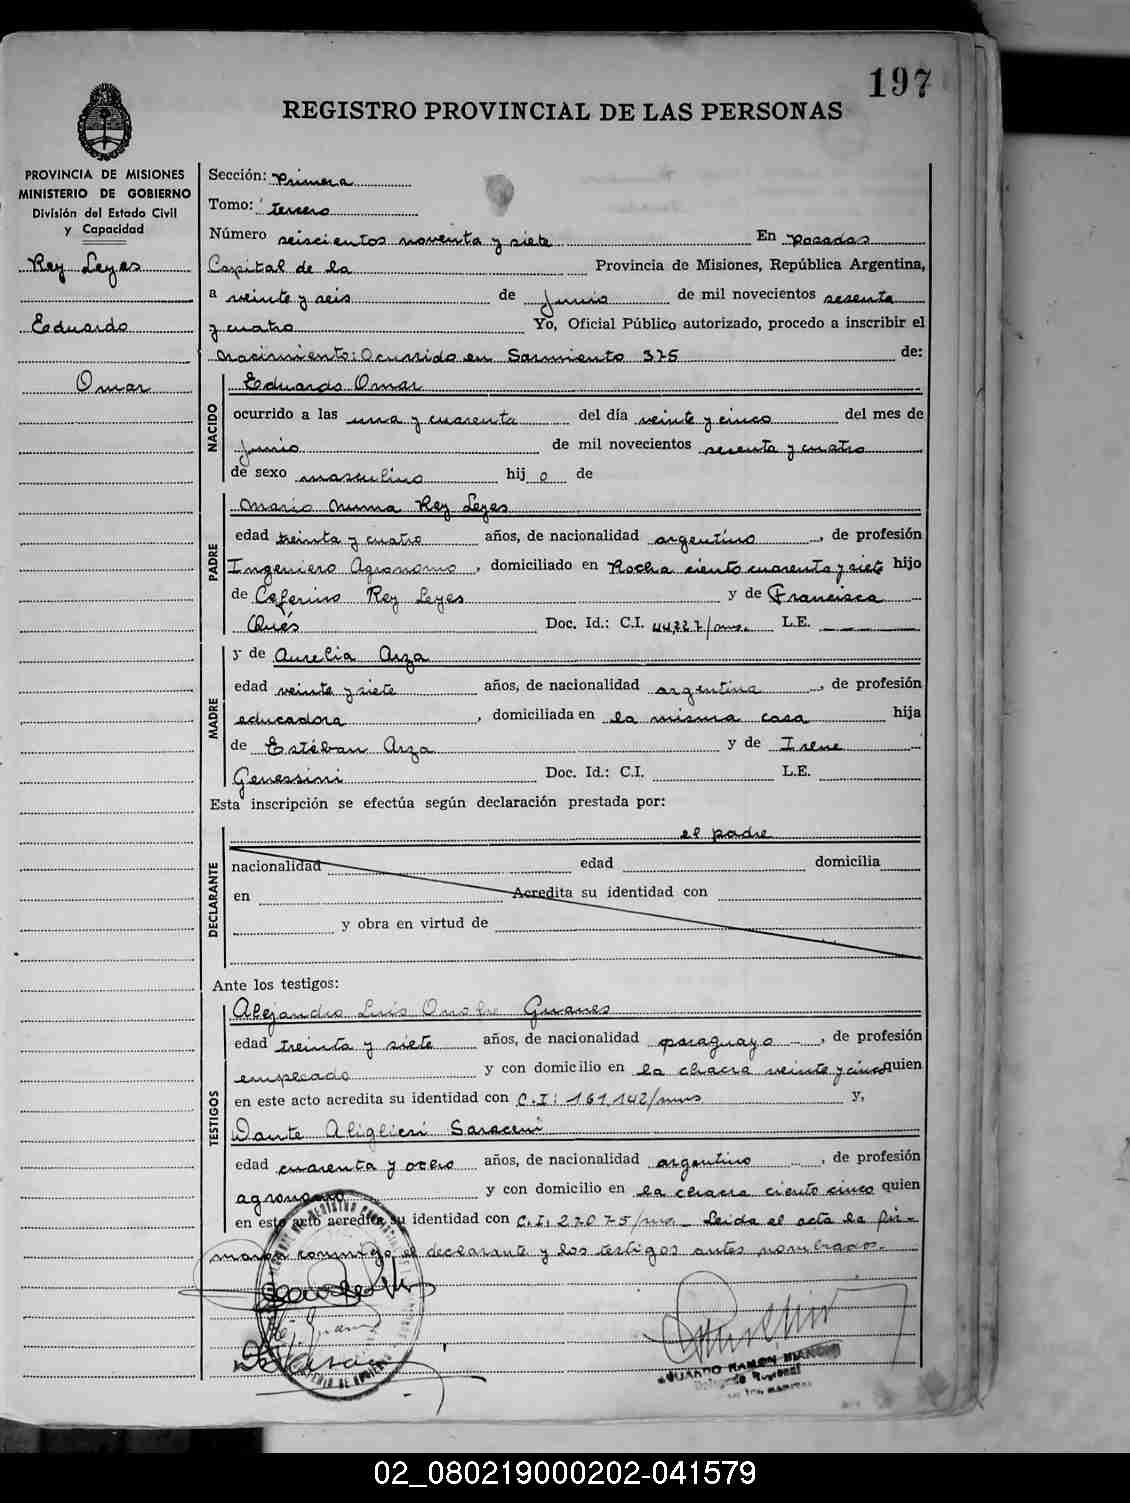 197
REGISTRO PROVINCIAL DE LAS PERSONAS
PROVINCIA DE MISIONES
MINISTERIO DE GOBIERNO
División del Estado Civil
y Capacidad
Rey Leyes
Eduardo
Omar
Sección: Primera
Tomo: tercero
Número seiscientos noventa y siete En Posadas
Capital de la Provincia de Misiones, República Argentina,
a veinte y seis de Junio de mil novecientos sesenta
y cuatro Yo, Oficial Público autorizado, procedo a inscribir el
nacimiento: Ocurrido en Sarmiento 375 de:
NACIDO
Eduardo Omar
ocurrido a las una y cuarenta del día veinte y cinco del mes de
Junio de mil novecientos sesenta y cuatro
de sexo masculino hij o de
PADRE
Mario Numa Rey Leyes
edad treinta y cuatro años, de nacionalidad argentino, de profesión
Ingeniero Agronomo, domiciliado en Rocha ciento cuarenta y siete hijo
de Ceferino Rey Leyes y de Francisca
Doc. Id.: C.I. 44,227/mns. L.E.
MADRE
y de Aurelia Arza
edad veinte y siete años, de nacionalidad argentina, de profesión
educadora, domiciliada en la misma casa hija
de Estéban Arza y de Irene
Genessini Doc. Id.: C.I. L.E.
Esta inscripción se efectúa según declaración prestada por:
DECLARANTE
el padre
nacionalidad edad domicilia
en Acredita su identidad con
y obra en virtud de
Ante los testigos:
TESTIGOS
Alejandro Luis Onofre Guanes
edad treinta y siete años, de nacionalidad paraguayo, de profesión
empleado y con domicilio en la chacra veinte y cinco quien
en este acto acredita su identidad con C.I: 161,142/mns y,
Dante Aliglieri Saraceni
edad cuarenta y ocho años, de nacionalidad argentino, de profesión
agronomo y con domicilio en la chacra ciento cinco quien
en este acto acredita su identidad con C.I. 27075/ms. Leida el acta la fir-
maron conmigo el declarante y los testigos antes nombrados.
EDUARDO RAMON
Delegado Regional
02_080219000202-041579